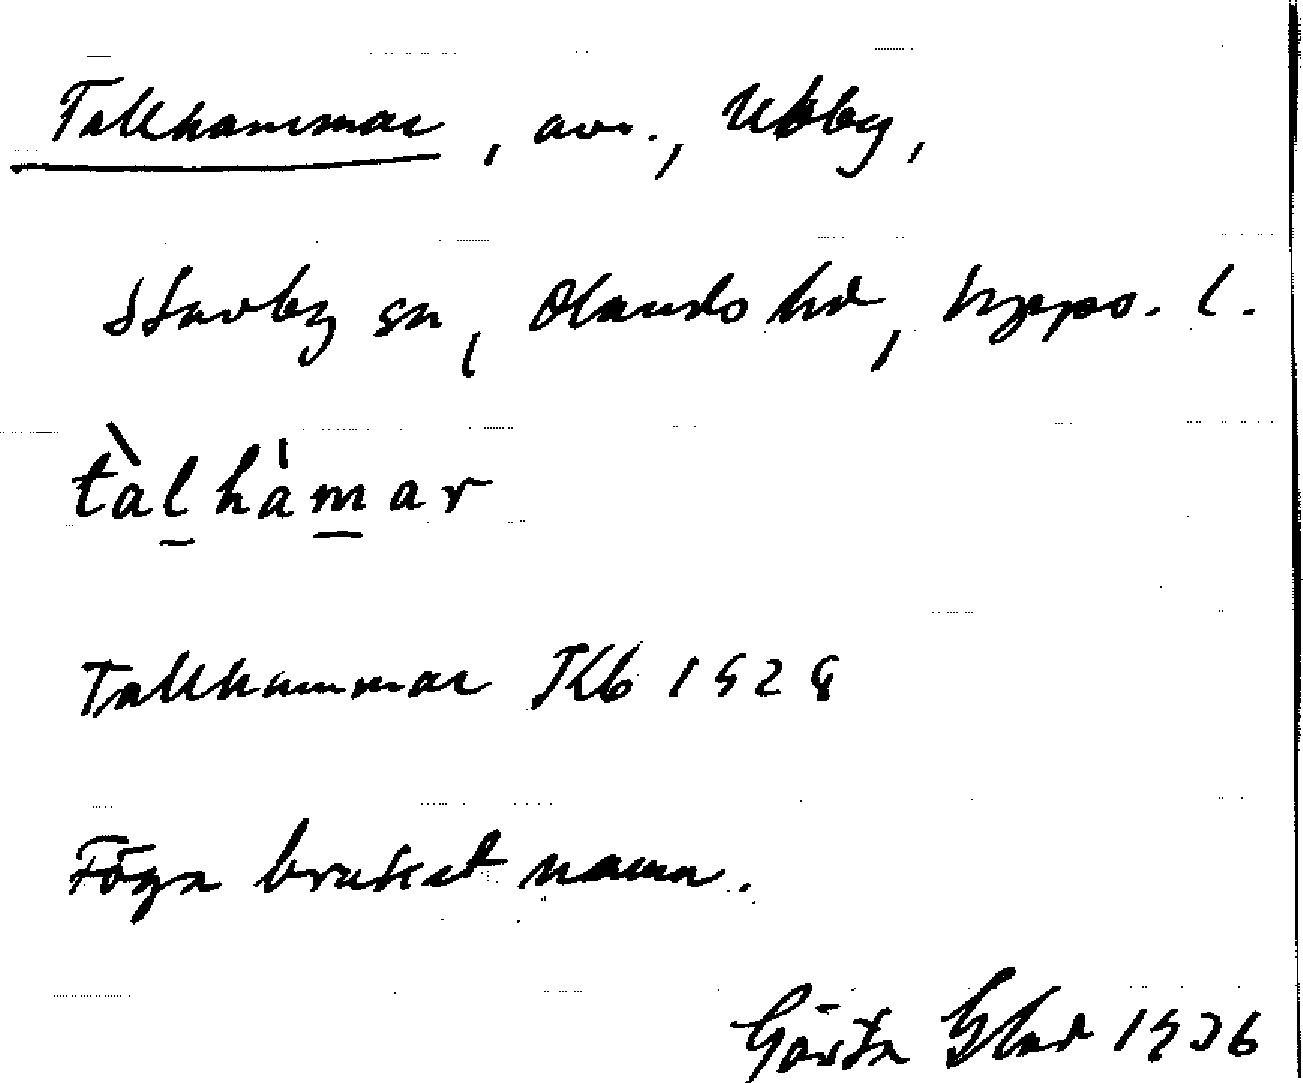 Tallhammar, avs., Ubby,
Stavby sn, Olands hd, Upps. l.
tàlhámar
Tallhammar Kb 1928
Föga brukat namn.
Gösta Blad 1936